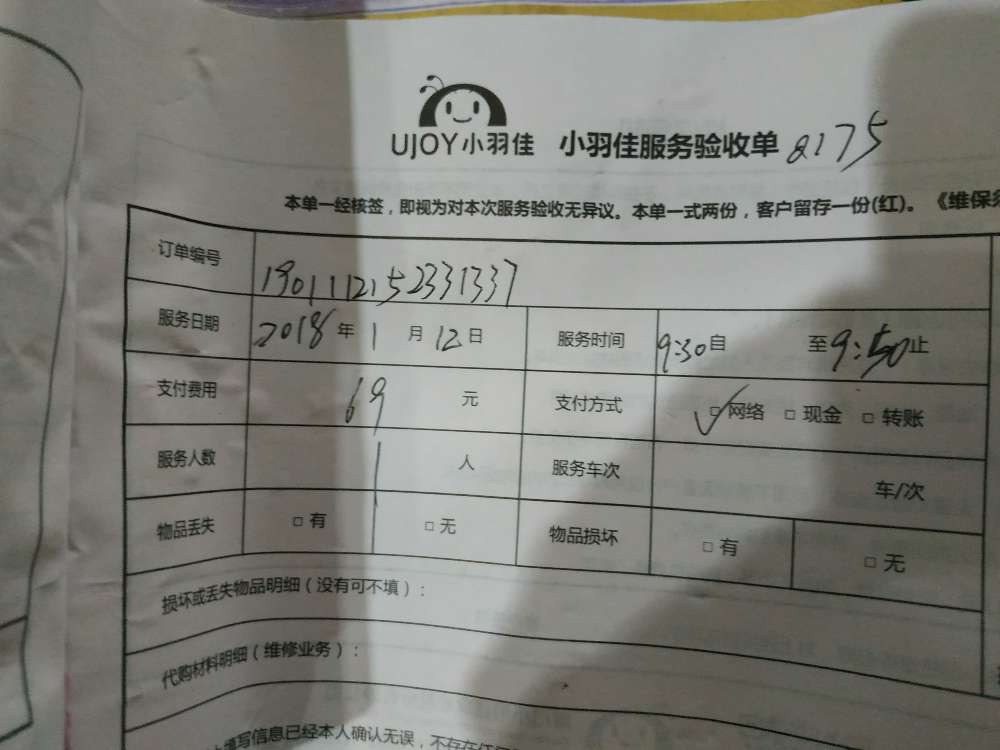 UJOY小羽佳 小羽佳服务验收单 2175
本单一经核签，即视为对本次服务验收无异议。本单一式两份，客户留存一份(红)。《维保须
订单编号 1901112152331337
服务日期 2018年 1月 12日 服务时间 9:30自 至9:50止
支付费用 69 元 支付方式 ✓□网络 □现金 □转账
服务人数 1 人 服务车次 车/次
物品丢失 □有 □无 物品损坏 □有 □无
损坏或丢失物品明细（没有可不填）：
代购材料明细（维修业务）：
填写信息已经本人确认无误，不存在任